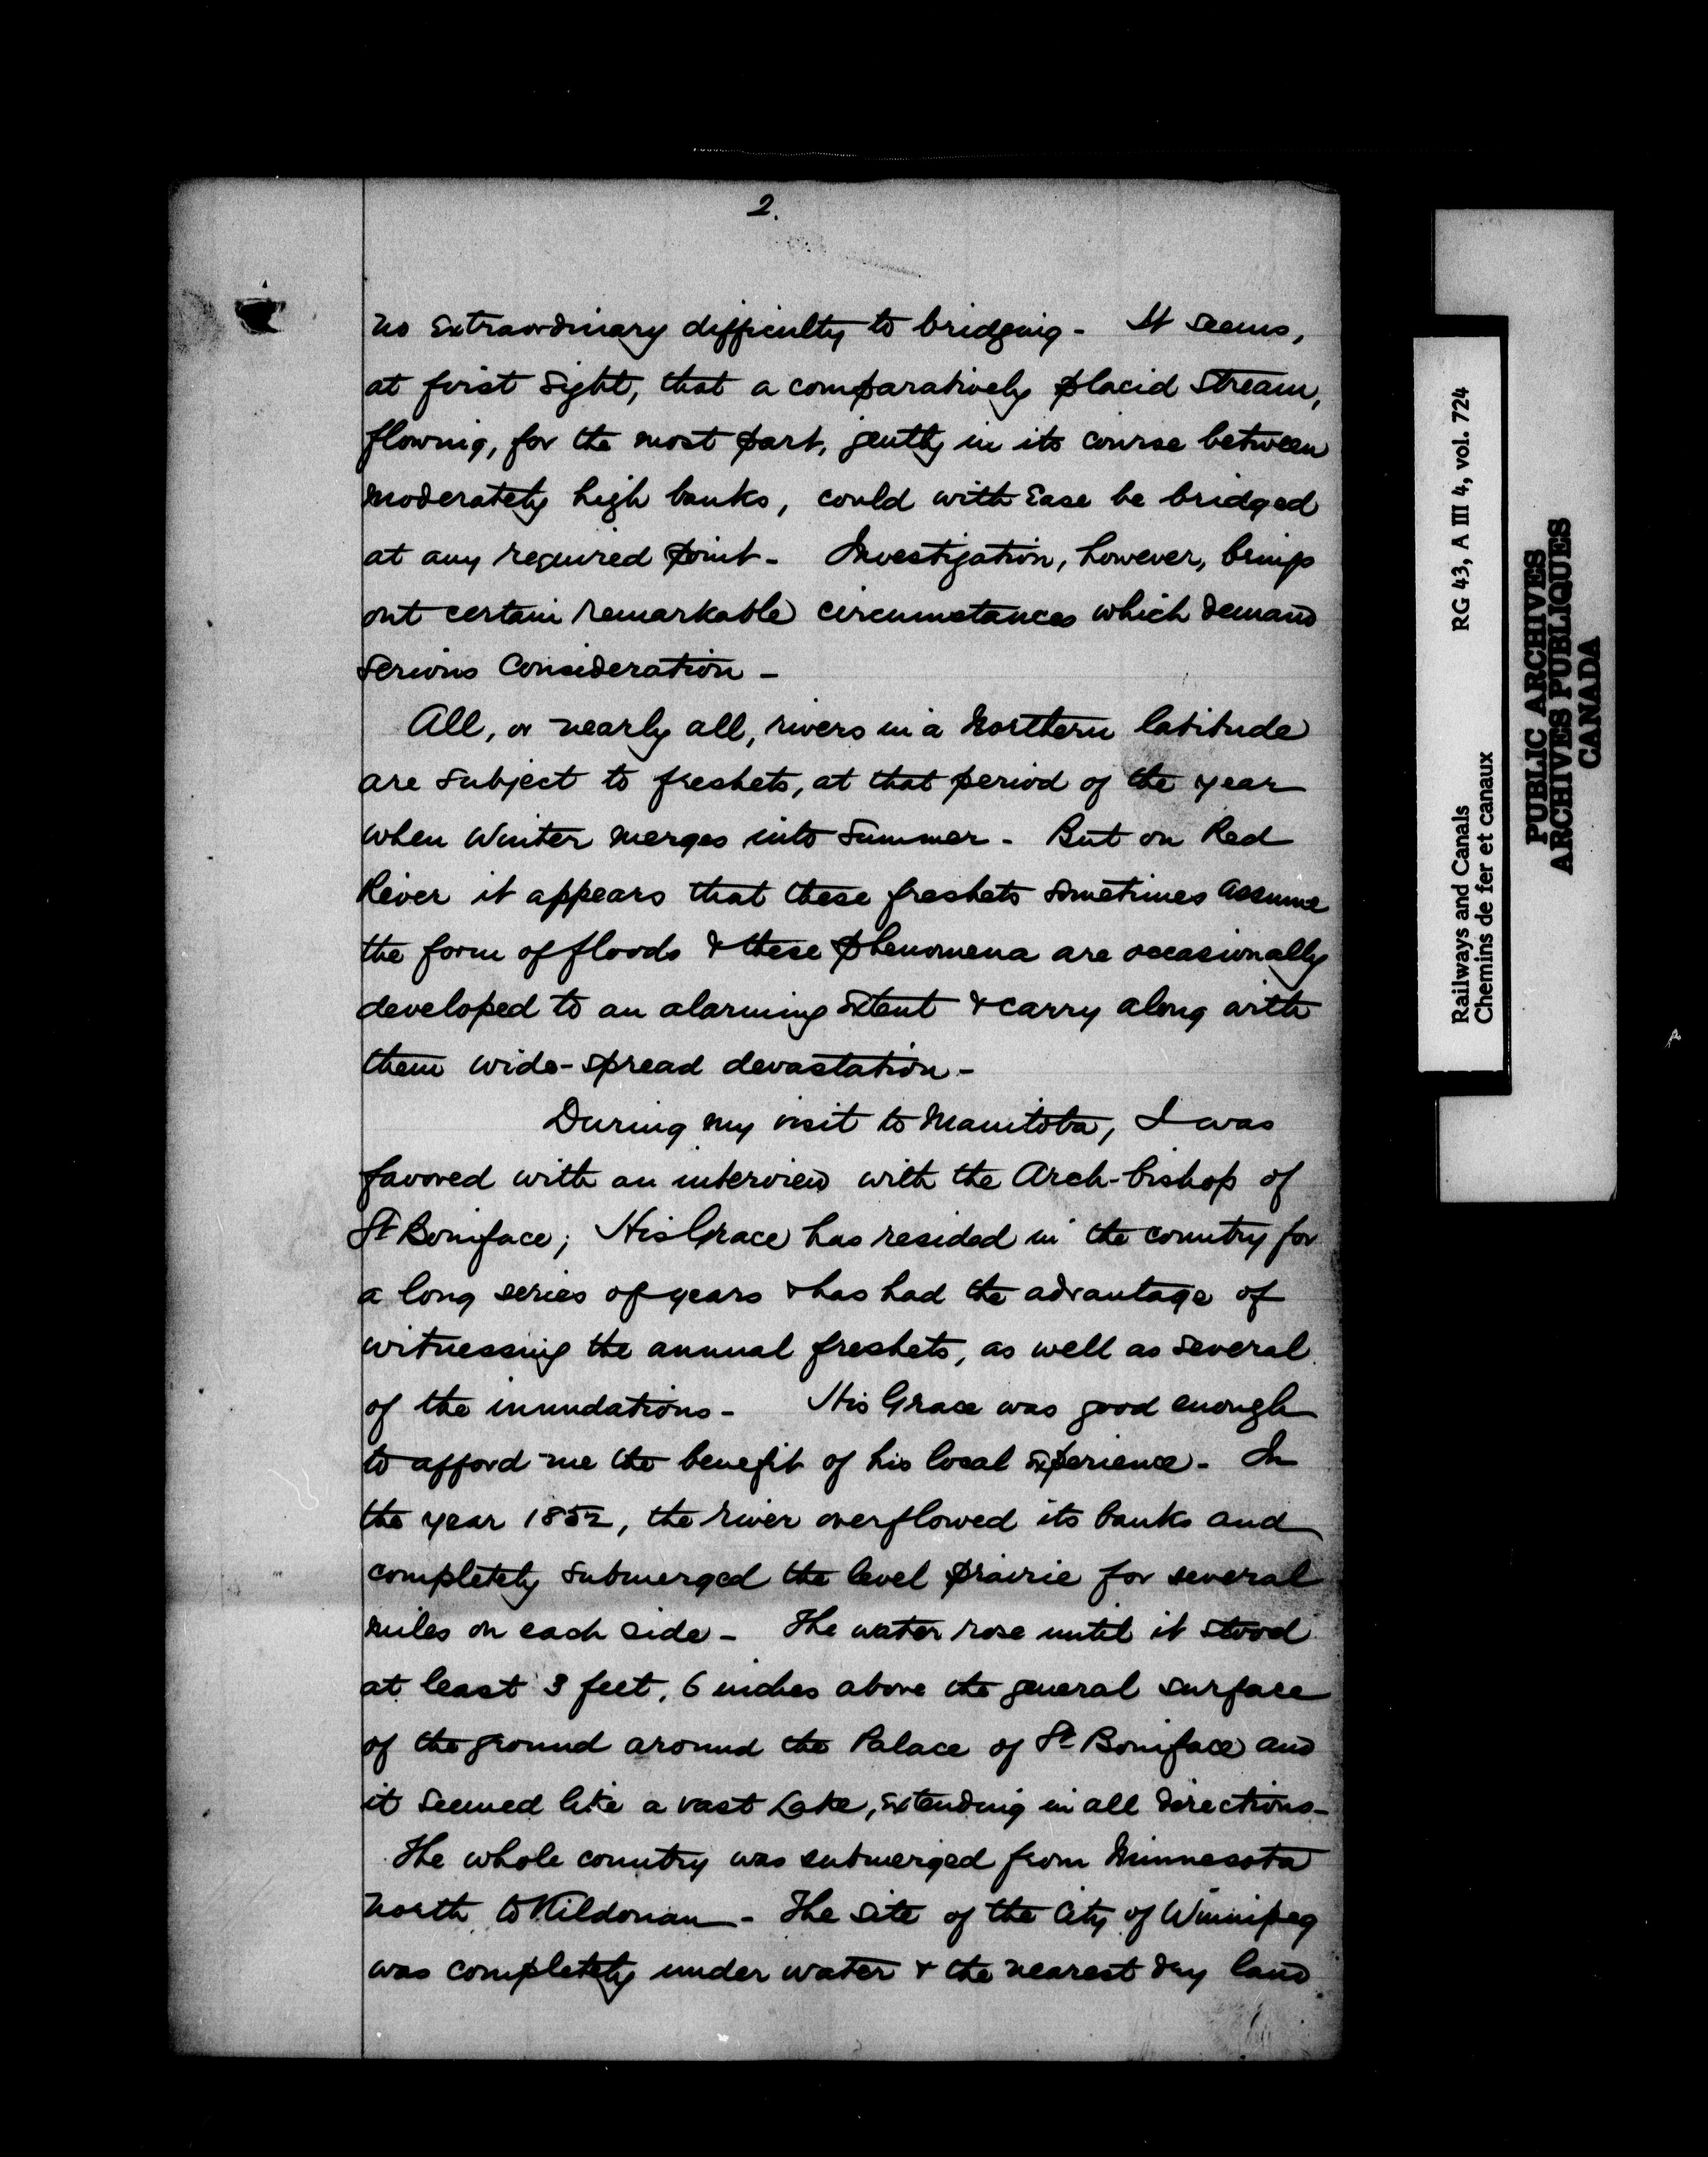 2.
no extraordinary difficulty to bridging - It seems,
at first sight, that a comparatively placid stream,
flowing, for the most part, gently in its course between
moderately high banks, could with ease be bridged
at any required point - Investigation, however, brings
out certain remarkable circumstances which demand
serious consideration -
All, or nearly all, rivers in a Northern latitude
are subject to freshets, at that period of the year
when Winter merges into Summer - But on Red
River it appears that these freshets sometimes assume
the form of floods & these phenomena are occasionally
developed to an alarming extent & carry along with
them wide-spread devastation -
During my visit to Manitoba, I was
favored with an interview with the Arch-bishop of
St Boniface; His Grace has resided in the country for
a long series of years & has had the advantage of
witnessing the annual freshets, as well as several
of the inundations - His Grace was good enough
to afford me the benefit of his local experience - In
the year 1852, the river overflowed its banks and
completely submerged the level prairie for several
miles on each side - The water rose until it stood
at least 3 feet, 6 inches above the general surface
of the ground around the Palace of St Boniface and
it seemed like a vast Lake, extending in all directions -
The whole country was submerged from Minnesota
North to Kildonan - The site of the City of Winnipeg
was completely under water & the nearest dry land
Railways and Canals RG 43, A III 4, vol. 724
Chemins de fer et canaux
PUBLIC ARCHIVES
ARCHIVES PUBLIQUES
CANADA